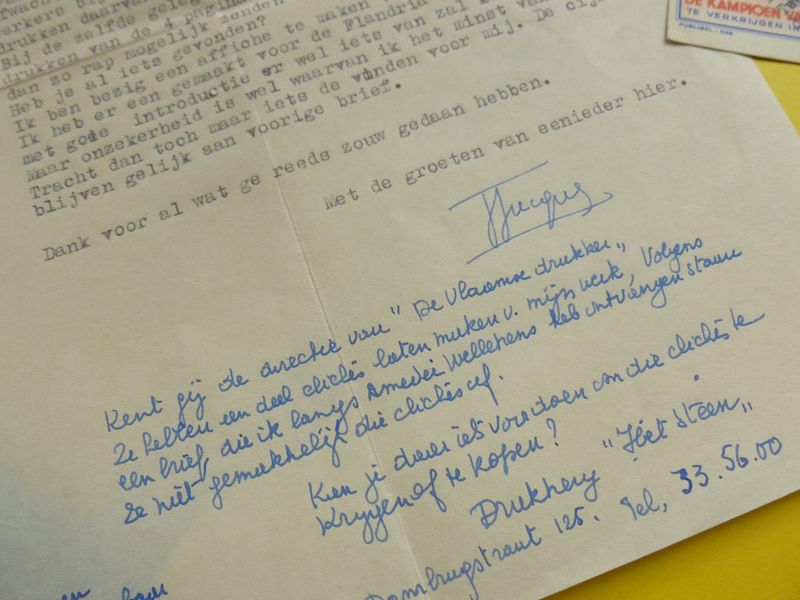 fwach
werkers bij
drukken daarva
Bij de zelfde geleg
drukken van de 4 pagina
dan zo rap mogelijk zenden
Heb je al iets gevonden?
Ik ben bezig een affiche te maken
Ik heb er een gemaakt voor de Flandria
met gode introductie er wel iets van zal k
Maar onzekerheid is wel waarvan ik het minst van
Tracht dan toch maar iets de vinden voor mij. De cij
blijven gelijk aan voorige brief.
Dank voor al wat ge reeds zouw gedaan hebben.
Met de groeten van eenieder hier.
Kent gij de directie van "De Vlaamse drukker"
Ze hebben een deel clichés laten maken v. mijn werk, Volgens
een brief, die ik langs Amedei Wellekens heb ontvangen staan
ze niet gemakkelijk die clichés af.
Kan je daar iets voor doen om die clichés te
krijgen of te kopen?
Drukkery "Het Steen"
Dambrugstraat 125. Tel, 33.56.00
DE KAMPIOEN VA
TE VERKRIJGEN I